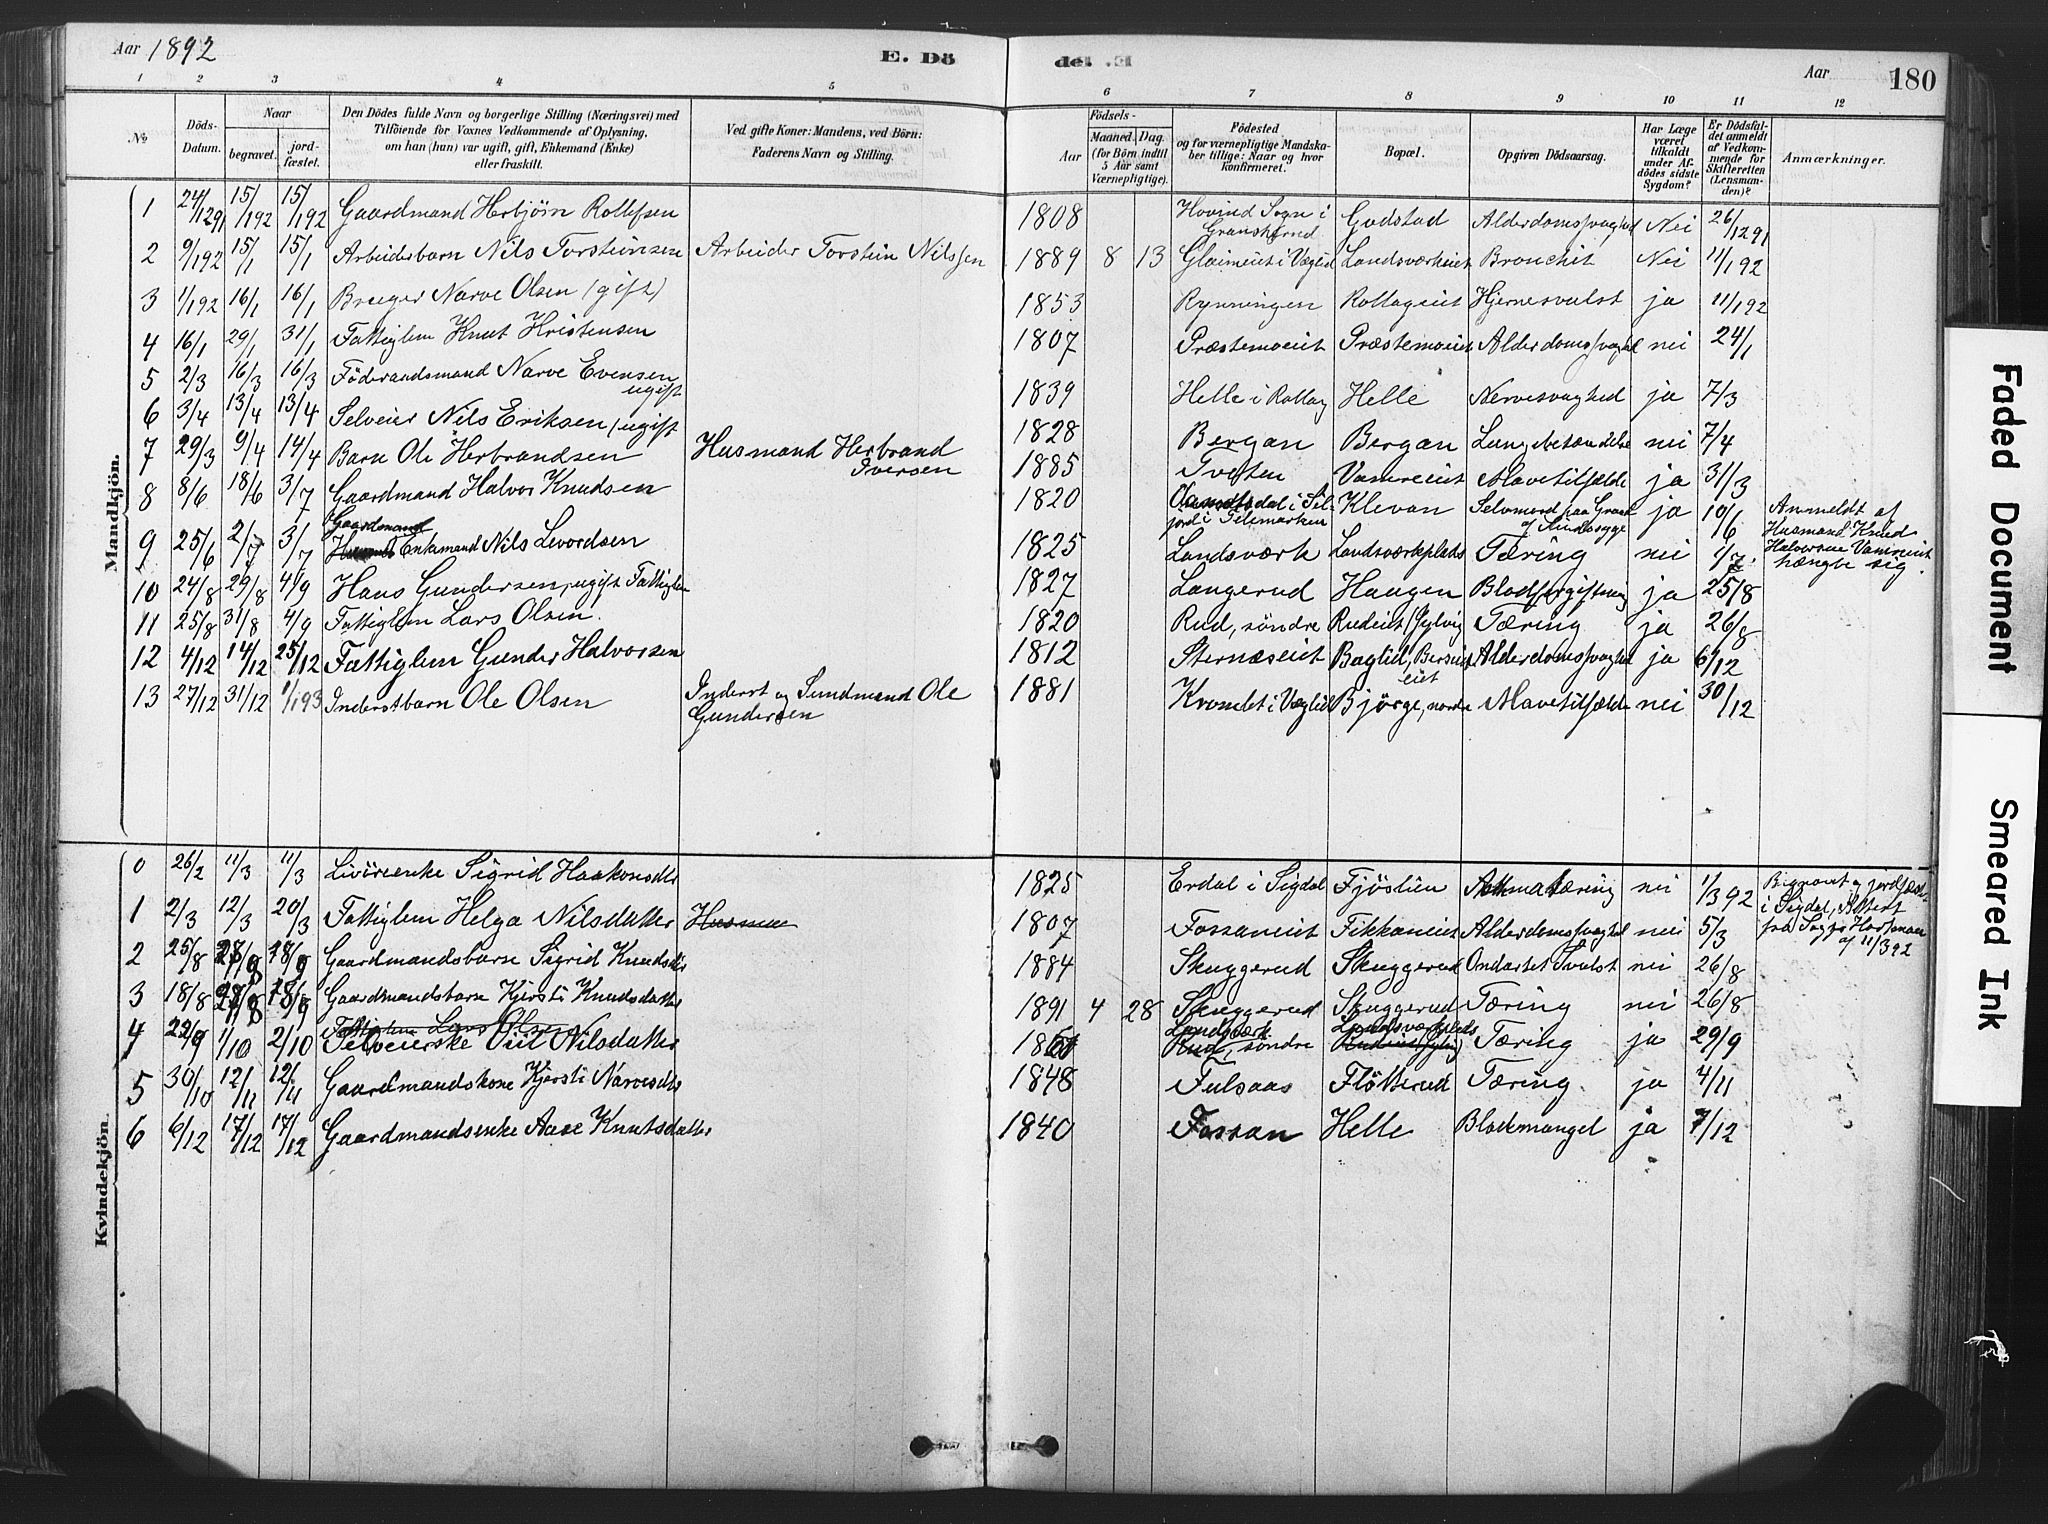 Aar 1892
E. Dö
de. .E
Aar
180
1 2 3 4 5 6 7 8 9 10 11 12
№
Döds-Datum.
Naar
begravet.
jord-fæstet.
Den Dödes fulde Navn og borgerlige Stilling (Næringsvei) med
Tilföiende for Voxnes Vedkommende af Oplysning,
om han (hun) var ugift, gift, Enkemand (Enke)
eller fraskilt.
Ved gifte Koner: Mandens, ved Börn:
Faderens Navn og Stilling.
Födsels-
Aar
Maaned. Dag.
(for Börn indtil
5 Aar samt
Værnepligtige).
Födested
og for værnepligtige Mandska-
ber tillige: Naar og hvor
konfirmeret.
Bopæl.
Opgiven Dödsaarsag.
Har Læge
været
tilkaldt
under Af-
dödes sidste
Sygdom?
Er Dödsfal-
det anmeldt
af Vedkom-
mende for
Skifteretten
(Lensman-
den)?
Anmærkninger.
Mandkjön.
1 24/1291 15/192 15/192 Gaardmand Herbjörn Rollefsen 1808 Hovind Sogn i Gransherred Gudstad Alderdomssvaghed Nei 26/1291
2 9/192 15/1 15/1 Arbeiderbarn Nils Torsteinsen Arbeider Torstein Nilssen 1889 8 13 Gleimeiet i Væglid Landsværkeiet Bronchit Nei 11/192
3 1/192 16/1 16/1 Bruger Narve Olsen (gift) 1853 Rynningen Rollageiet Hjernesvulst ja 11/192
4 16/1 29/1 31/1 Fattiglem Knut Kristensen 1807 Præstemoeiet Præstemoeiet Alderdomssvaghd nei 24/1
5 2/3 16/3 16/3 Föderaadsmand Narve Evensen ugift 1839 Helle i Rollag Helle Nervesvaghed ja 7/3
6 3/4 13/4 13/4 Selveier Nils Eriksen, ugift 1828 Bergan Bergan Lungebetændelse nei 7/4
7 29/3 9/4 14/4 Barn Ole Herbrandsen Husmand Herbrand Iversen 1885 Tveten Vamreeiet Mavetilfælde ja 31/3
8 8/6 18/6 3/7 Gaardmand Halvor Knudsen 1820 i Siljord i Telemarken Klevan Selvmord paa Grund af Sindssyge ja 10/6 Anmeldt af Husmand Knud Halvorsen Vamreiet hængte sig.
9 25/6 2/7 3/7 Gaardmand Enkemand Nils Levordsen 1825 Landsværk Landsværkplads Tæring nei 1/7
10 24/8 29/8 4/9 Hans Gundersen, ugift Fattiglem 1827 Langerud Haugen Blodforgiftning ja 25/8
11 25/8 31/8 4/9 Fattiglem Lars Olsen. 1820 Rud, söndre Rudeiet Tæring ja 26/8
12 4/12 14/12 25/12 Fattiglem Gunder Halvorsen 1812 Sternæseiet Baglid, Alderdomssvaghd ja 6/12
13 27/12 31/12 1/193 Inderstbarn Ole Olsen Inderst og Sundmand Ole Gundersen 1881 Kvomdet i Væglid Björge, nordre Mavetilfælde nei 30/12
Kvindekjön.
0 26/2 11/3 11/3 Livöreenke Sigrid Haakonsdtr 1825 Erdal i Sigdal Fjöslien Asthma tæring nei 1/392 Begravet og jordfæstet i Sigdal, Attest fra Sogpr Horsman af 11/392
1 2/3 12/3 20/3 Fattiglem Helga Nilsdatter Husma 1807 Fossaneiet Fikkaneiet Alderdomssvaghd nei 5/3
2 25/8 Gaardmandsbarn Sigrid Knudsdtr 1884 Skuggerud Skuggerud Ondartet Svulst nei 26/8
3 18/8 Gaardmandsbarn Kjersti Knudsdatter 1891 4 28 Skuggerud Skuggerud Tæring nei 26/8
4 22/9 1/10 2/10 Fattiglem Lars Olsen Selveierske Nilsdatter Landsværk Rud, söndre Landsværkplads Tæring ja 29/9
5 30/10 12/11 12/11 Gaardmandskone Kjersti Narvesdtr 1848 Fulsaas Flötterud Tæring ja 4/11
6 6/12 17/12 17/12 Gaardmandsenke Aase Knutsdatter 1840 Fossan Helle Blodmangel ja 7/12
Faded Document
Smeared Ink